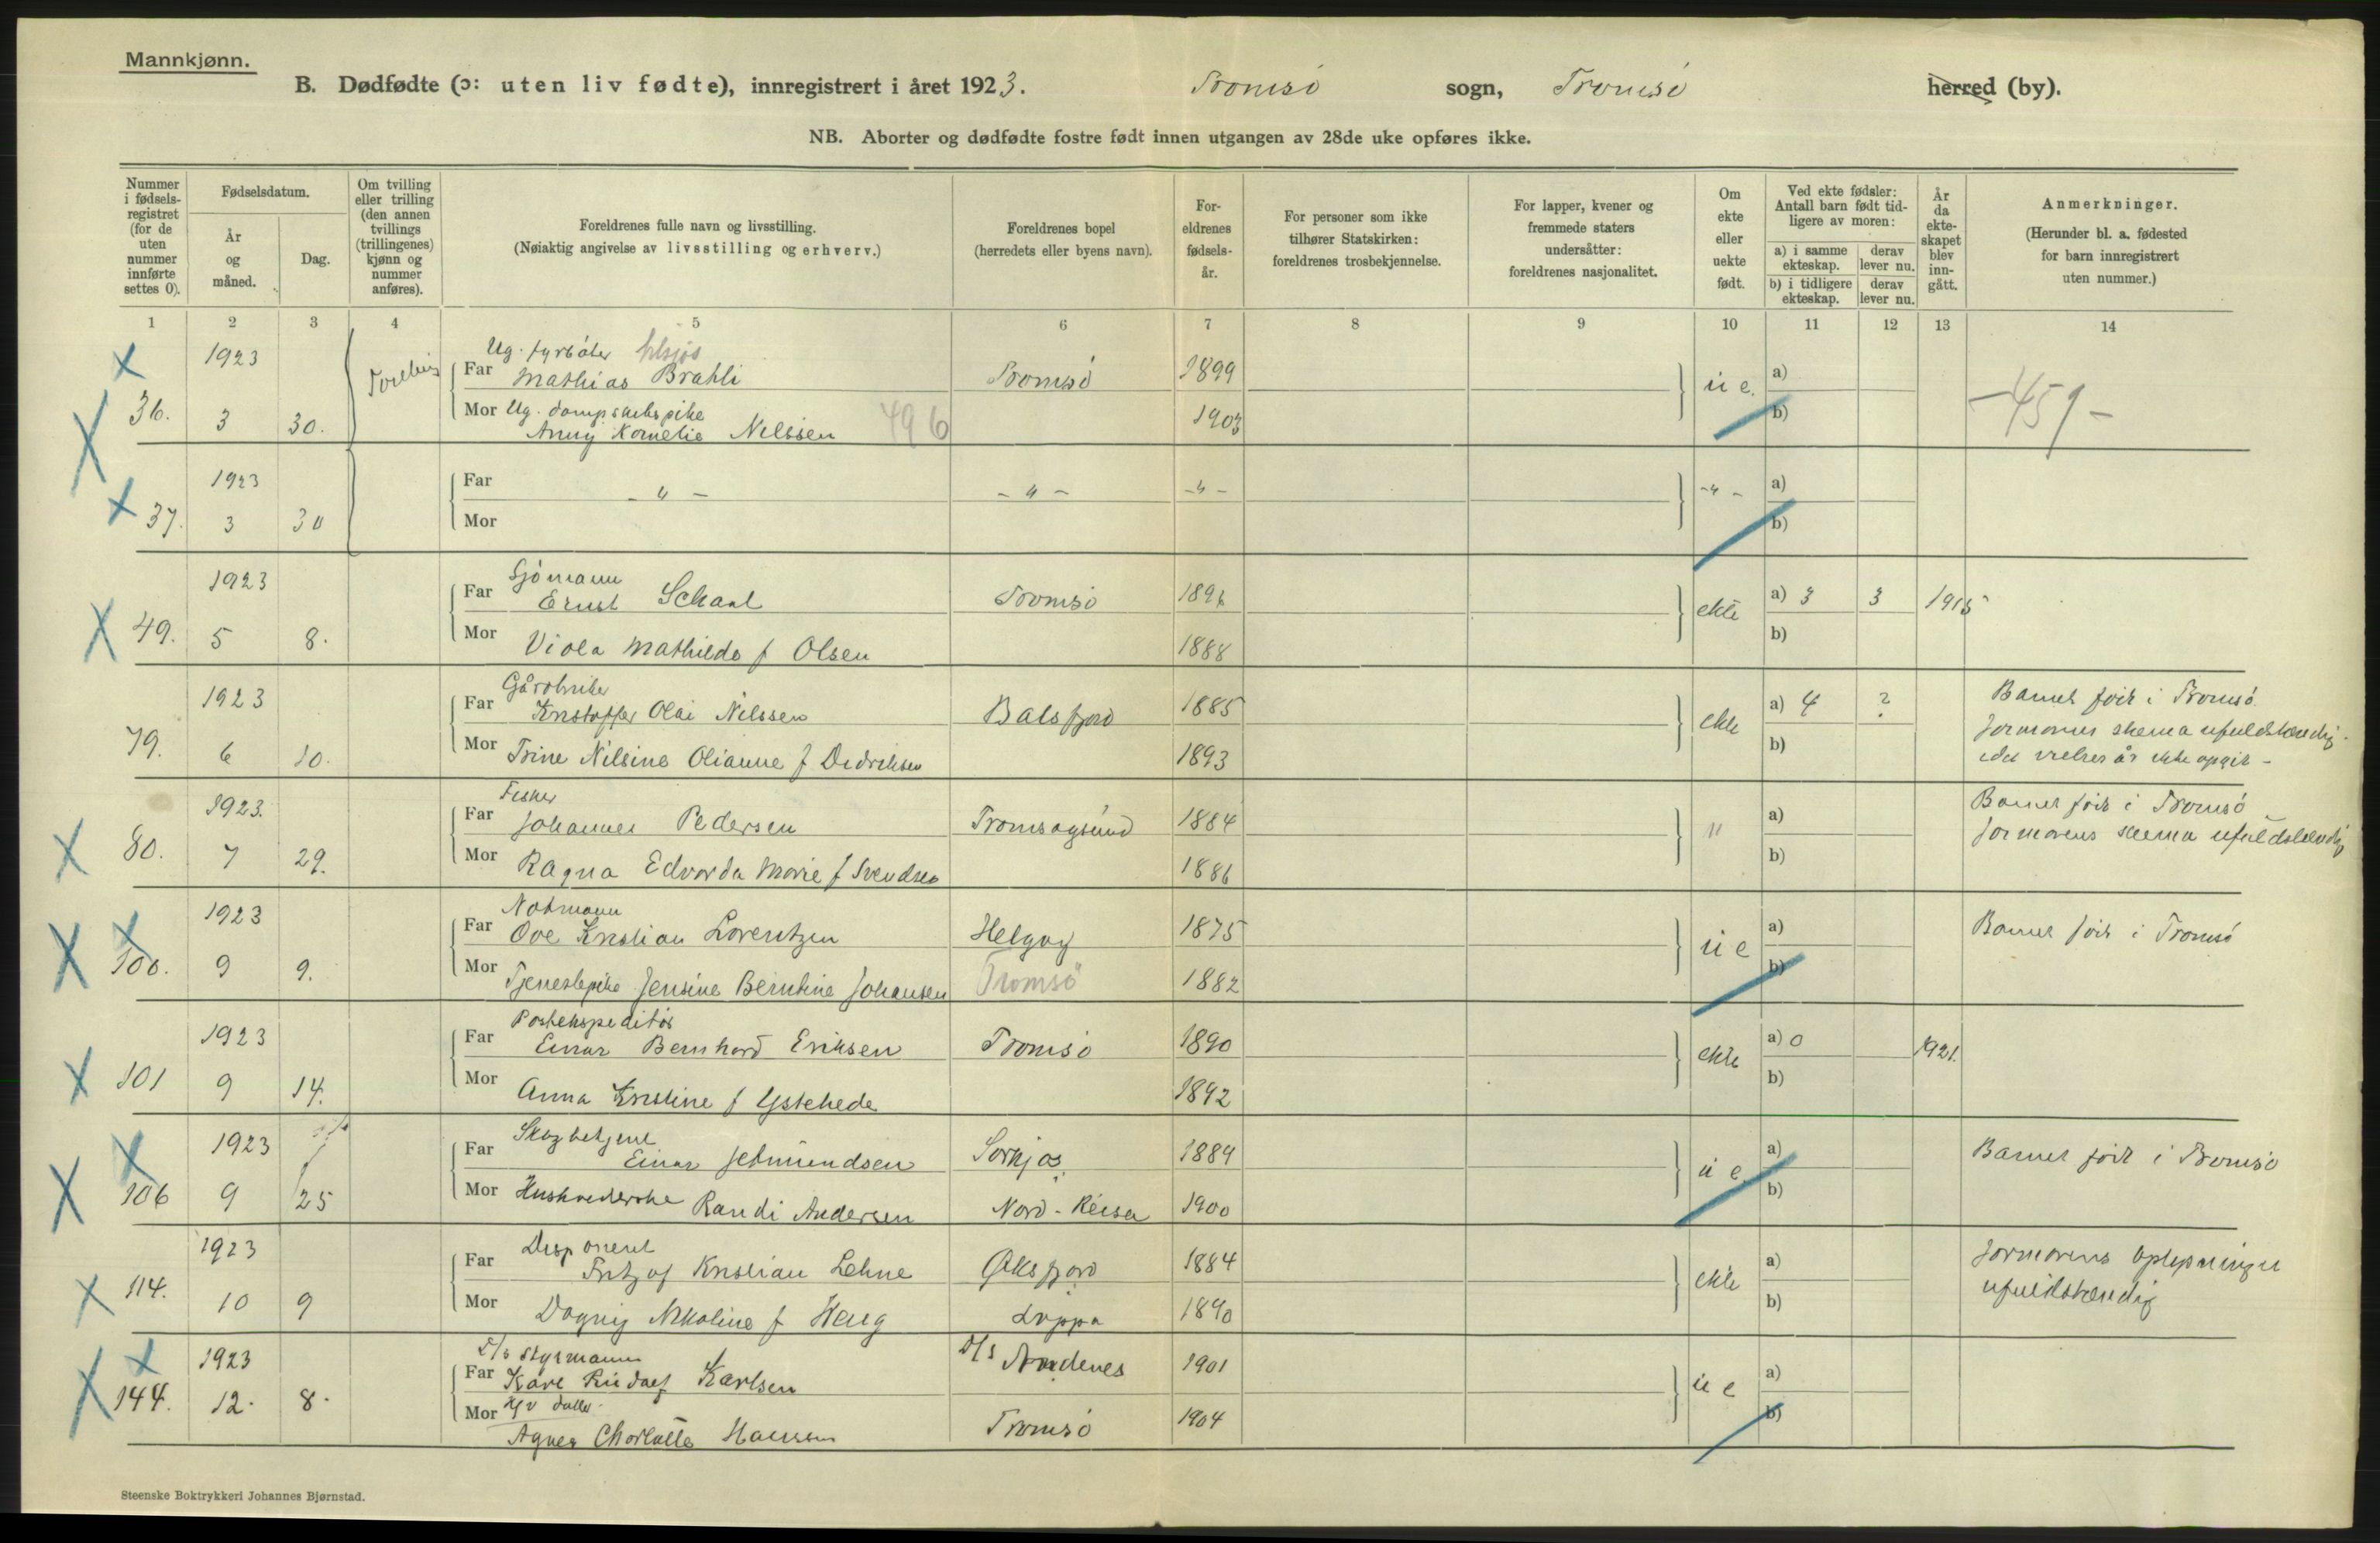 Mannkjønn.
B. Dødfødte (ɔ: uten liv fødte), innregistrert i året 1923. Tromsö sogn, Tromsö herred (by).
NB. Aborter og dødfødte fostre født innen utgangen av 28de uke opføres ikke.
Nummer i fødsels-registret (for de uten nummer innførte settes 0).
Fødselsdatum.
År og måned.
Dag.
Om tvilling eller trilling (den annen tvillings (trillingenes) kjønn og nummer anføres).
Foreldrenes fulle navn og livsstilling.
(Nøiaktig angivelse av livsstilling og erhverv.)
Foreldrenes bopel
(herredets eller byens navn).
For-eldrenes fødsels-år.
For personer som ikke tilhører Statskirken: foreldrenes trosbekjennelse.
For lapper, kvener og fremmede staters undersåtter: foreldrenes nasjonalitet.
Om ekte eller uekte født.
Ved ekte fødsler: Antall barn født tid-ligere av moren:
a) i samme ekteskap.
derav lever nu.
b) i tidligere ekteskap.
derav lever nu.
År da ekte-skapet blev inn-gått.
Anmerkninger.
(Herunder bl. a. fødested for barn innregistrert uten nummer.)
1 2 3 4 5 6 7 8 9 10 11 12 13 14
Ug. fyrböter
1923 Far Mathias Brahli Tromsö 1899 u e. a)
36. 3 30. Mor Ug. dampskibspike 1903 b) -459-
Anny Kornelie Nelssen 496
1923 Far - " - - " - - " - - " - a)
37. 3 30 Mor b)
Sjömann
1923 Far Ernst Schanl Tromsö ekte a) 3 3 1915
49. 5 8. Mor Viola Mathilde f Olsen 1888 b)
Gårdbruker
1923 Far Kristoffer Olai Nilssen Balsfjord 1885 ekte a) 4 ? Barnet föit i Tromsö.
79. 6 10. Mor Trine Nilsine Olianne f Dedriksen 1893 b) Jormorens skema ufuldstændig
idet vielses år ikke opgit -
Fisker
1923. Far Johannes Pedersen Tromsøysund 1884 " a) Barnet föit i Tromsö
80. 7 29. Mor Ragna Edvarda Marie f Svendsen 1886 b) Jormorens skema ufuldstændig
Notmann
1923 Far Ove Kristian Lorentzen Helgøy 1875 u e a) Barnet föit i Tromsö
100. 9 9. Mor Tjenestepike Jensine Berntine Johansen Tromsö 1882 b)
Postekspeditör
1923 Far Einar Bernhard Eriksen Tromsö 1890 ekte a) 0 1921.
101 9 14. Mor Anna Kristine f 1892 b)
Skogbetjent
1923 Far Einar Sørkjos 1889 u e. a) Barnet föit i Tromsö
106 9 25 Mor Husholderske Randi Andersen Nord-Reisa 1900 b)
Disponent
1923 Far Fritjof Kristian Lehne Øksfjord 1884 ekte a) Jormorens oplysninger
114. 10 9 Mor Dagny Nikoline f Haug Loppa 1890 b) ufuldstændig
D/s Styrmann
1923 Far Kåre Rudolf Karlsen D/s Andenes 1901 u e a)
144. 12. 8. Mor Agnes Charlotte Hansen Tromsö 1904 b)
Steenske Boktrykkeri Johannes Bjørnstad.